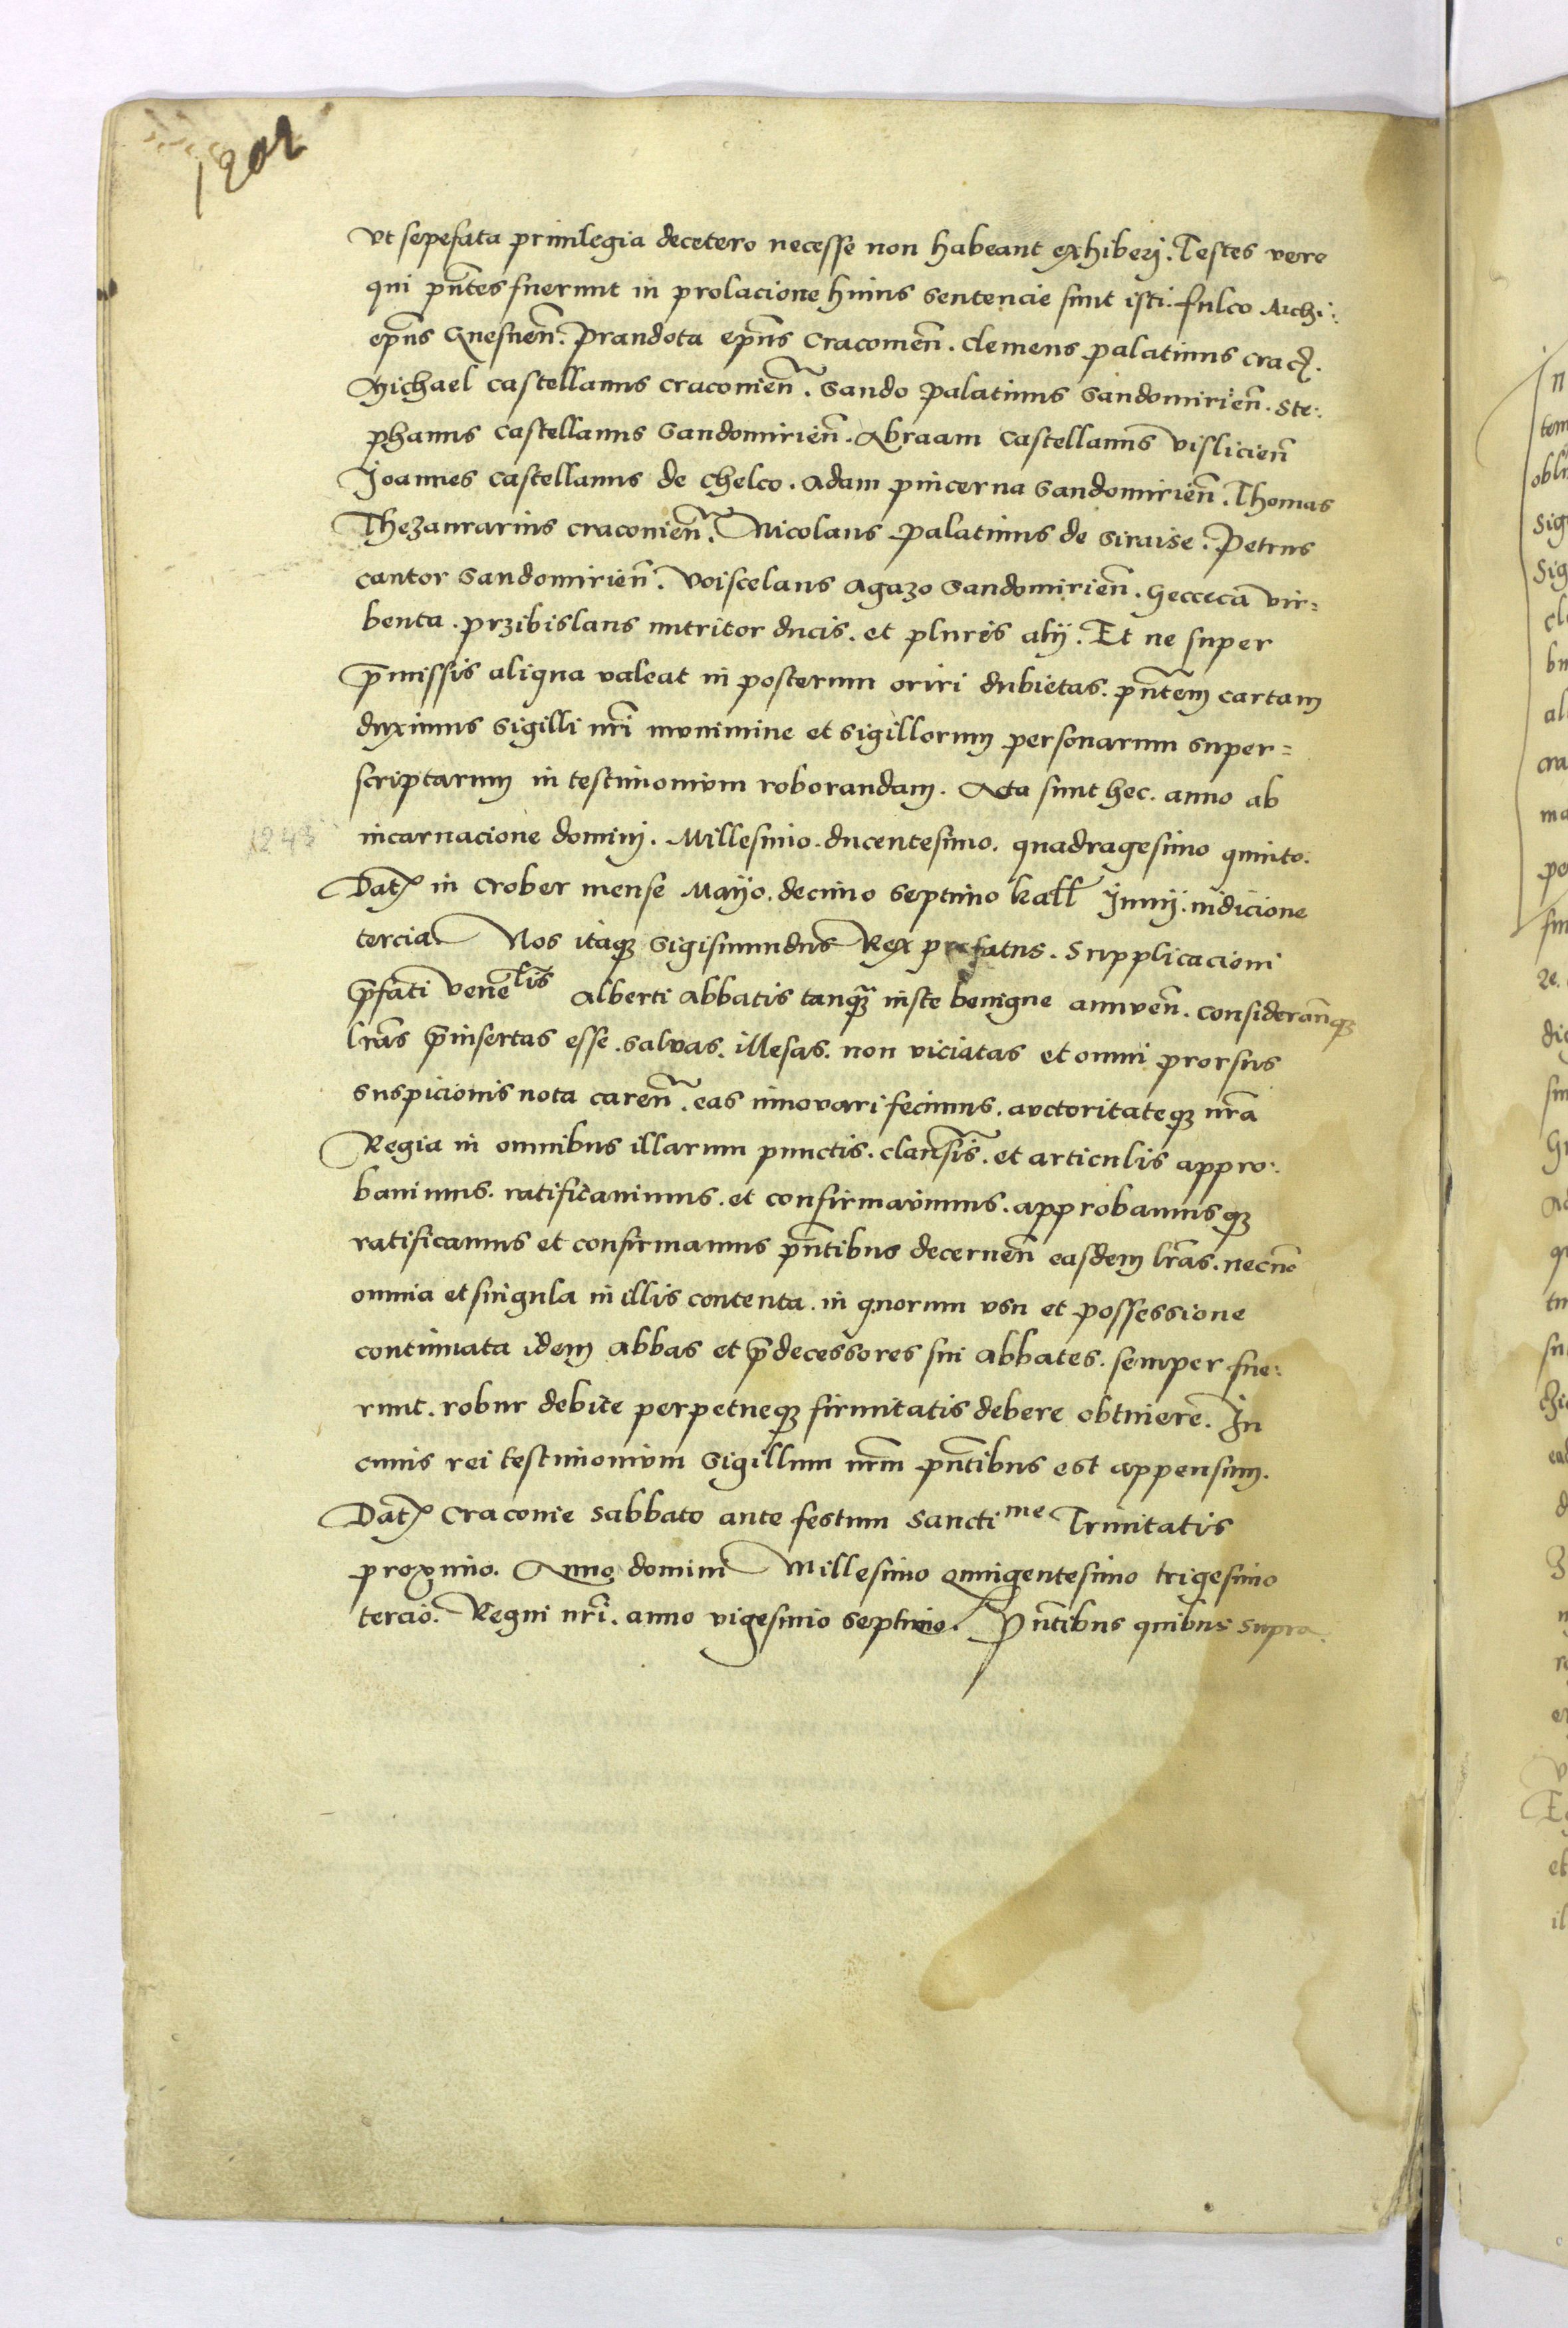 1202
Vt sepefata priuilegia decetero necesse non habeant exhiberj. Testes vero
qui pñtes fuerunt in prolacione huius sentencie sunt isti. fulco Archi:
epũs Gnesneñ. Prandota epũs Cracouieñ. Clemens palatinus crac.
Michael castellanus cracouieñ. Sando Palatinus Sandomirieñ. Ste:
phanus castellanus Sandomirieñ. Abraam castellanus Vislicieñ
Joannes castellanus de Chelco. Adam pincerna Sandomirieñ. Thomas
Thezaurarius cracouieñ. Nicolaus Palatinus de Siraise. Petrus
cantor Sandomirieñ. Voiscelaus Agazo Sandomirieñ. Geccecã vir=
benta. przibislaus nutritor ducis. et plures alij. Et ne super
p̃missis aliqua valeat in posterum oriri dubietas. pñtem cartam
duximus sigilli nr̃i munimine et sigillorum personarum super=
scriptarum in testimonium roborandam. Acta sunt hec. anno ab
1245
incarnacione dominj. Millesimo. ducentesimo. quadragesimo quinto.
Dat in Crober mense Mayo. decimo septimo kall Junij. indicione
tercia. Nos itaq Sigismundus Rex prefatus. Supplicacioni
p̃fati veneˡⁱˢ Alberti Abbatis tanq̃ iuste benigne annueñ. considerañq
lr̃as p̃insertas esse. saluas. illesas. non viciatas et omni prorsus
suspicionis nota careñ. eas innouari fecimus. auctoritateq nr̃a
Regia in omnibus illarum punctis. clausis. et articulis appro:
bauimus. ratificauimus. et confirmauimus. approbamusq
ratificamus et confirmamus pñtibus decerneñ easdem lr̃as. necno
omnia et singula in illis contenta. in quorum vsu et possessione
continuata idem Abbas et p̃decessores sui Abbates. semper fue:
runt. robur debite perpetueq firmitatis debere obtinere. In
cuius rei testimonium Sigillum nr̃m pñtibus est appensum.
Dat Cracouie Sabbato ante festum Sanctiᵐᵉ Trinitatis
proximo. Anno domini Millesimo quingentesimo trigesimo
tercio. Regni nr̃i. anno vigesimo septimo. Pñtibus quibus supra.